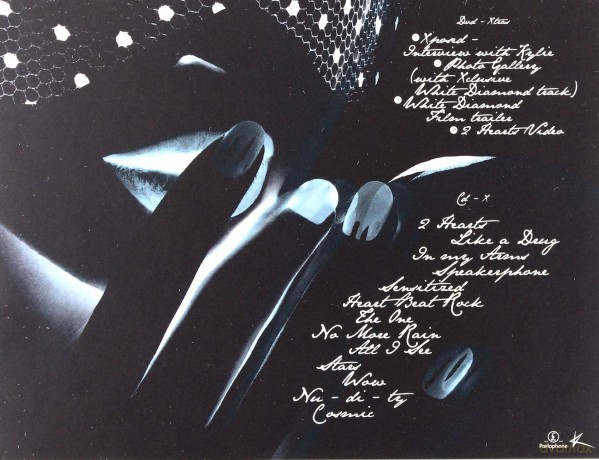 Dvd - Xtras
Xposed -
Interview with Kylie
Photo Gallery
(with Xclusive
White Diamond track)
White Diamond
Film trailer
2 Hearts Video
Cd - X
2 Hearts
Like a Drug
In my Arms
Speakerphone
Sensitized
Heart Beat Rock
The One
No More Rain
All I See
Stars
Wow
Nu - di - ty
Cosmic
Parlophone